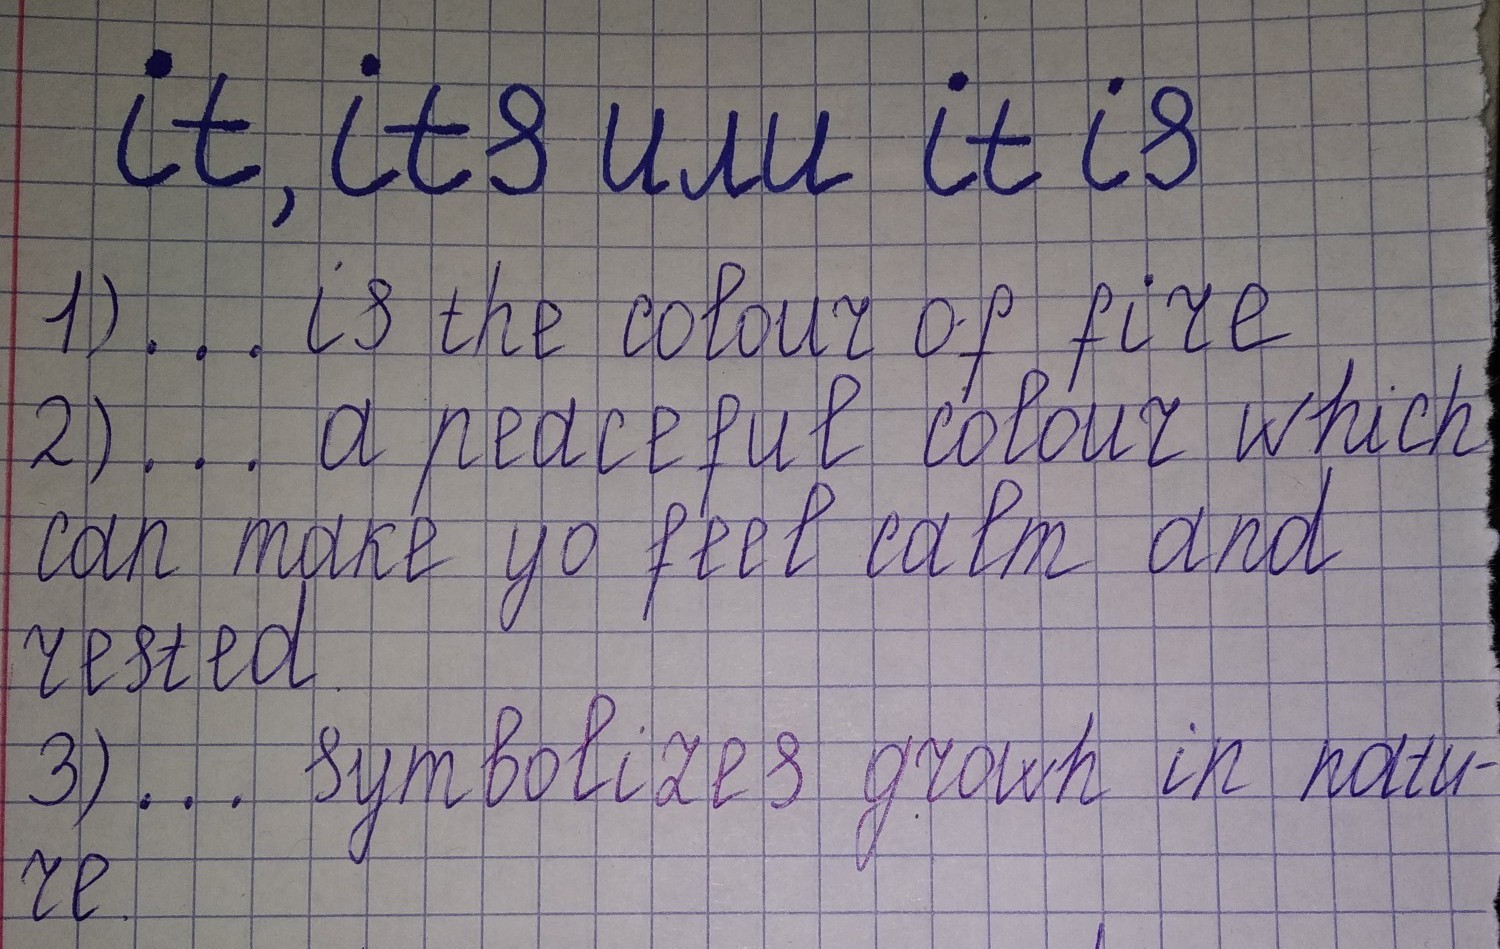 it, its или it is
1) ... is the colour of fire
2) ... a peaceful colour which
can make yo feel calm and
rested.
3) ... symbolizes growh in natu-
re.